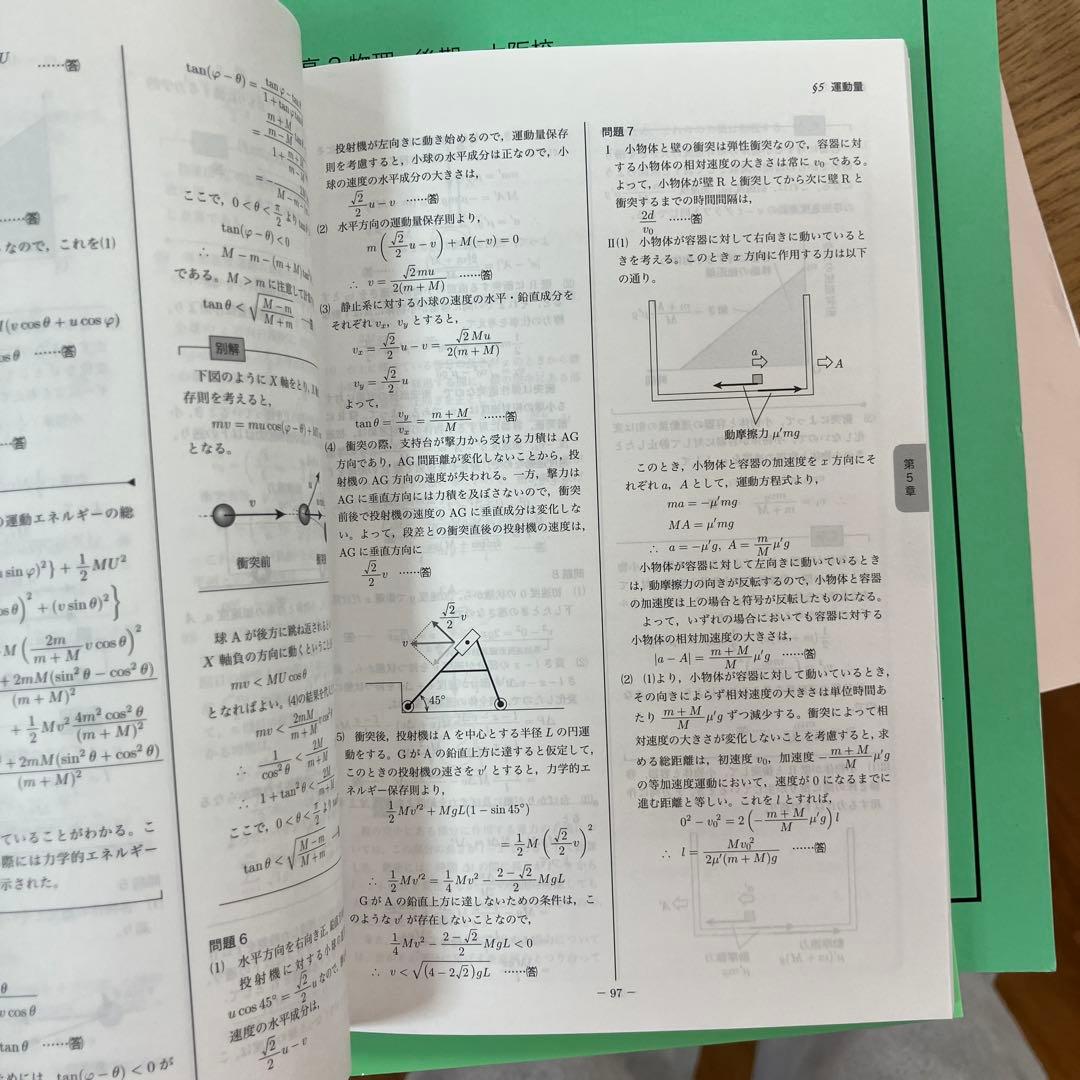 MU
……答
……答
なので，これを(1)
M(v cosθ + u cosφ)
osθ ……答
……答
運動エネルギーの総
u sinφ)²} + 1/2 MU²
osθ)² + (v sinθ)²}
M(2m/(m+M) v cosθ)²
+ 2mM(sin²θ − cos²θ)/(m+M)²
+ 1/2 Mv² 4m² cos²θ/(m+M)²
+ 2mM(sin²θ + cos²θ)/(m+M)²
ていることがわかる。こ
際には力学的エネルギー
示された。
v cosθ
tanθ ……答
ためには，tan(φ−θ) < 0 が
tan(φ−θ) =
ここで，0<θ<π/2 より
tan(φ−θ)<0
∴ M−m−(m+M)
である。M>m に注意して
tanθ < √((M−m)/(M+m))
別解
下図のように X 軸をとり，
存則を考えると，
mv = mu cos(φ−θ)+
となる。
v
衝突前
球 A が後方に跳ね返される
X 軸負の方向に動くという
mv < MU cosθ
となればよい。(4)の結果を
mv < 2mM/(m+M) v cos²θ
∴ 1/cos²θ < 2M/(m+M)
∴ 1+tan²θ < 2M/(m+M)
ここで，0<θ<π/2 より
tanθ < √((M−m)/(M+m))
問題 6
(1) 水平方向を右向き正，鉛直
投射機に対する小球の
u cos 45° = √2/2 u なので，
速度の水平成分は，
√2/2 u−v
高2物理 後期 大阪校
§5 運動量
投射機が左向きに動き始めるので，運動量保存
則を考慮すると，小球の水平成分は正なので，小
球の速度の水平成分の大きさは，
√2/2 u − v ……答
(2) 水平方向の運動量保存則より，
m(√2/2 u − v) + M(−v) = 0
∴ v = √2mu/2(m+M) ……答
(3) 静止系に対する小球の速度の水平・鉛直成分を
それぞれ vx，vy とすると，
vx = √2/2 u − v = √2Mu/2(m+M)
vy = √2/2 u
よって，
tanθ = vy/vx = (m+M)/M ……答
(4) 衝突の際，支持台が撃力から受ける力積は AG
方向であり，AG 間距離が変化しないことから，投
射機の AG 方向の速度が失われる。一方，撃力は
AG に垂直方向には力積を及ぼさないので，衝突
前後で投射機の速度の AG に垂直成分は変化しな
い。よって，段差との衝突直後の投射機の速度は，
AG に垂直方向に
√2/2 v ……答
√2/2 v
v
45°
5) 衝突後，投射機は A を中心とする半径 L の円運
動をする。G が A の鉛直上方に達すると仮定して，
このときの投射機の速さを v′ とすると，力学的エ
ネルギー保存則より，
1/2 Mv′² + MgL(1 − sin 45°)
= 1/2 M(√2/2 v)²
∴ 1/2 Mv′² = 1/4 Mv² − (2−√2)/2 MgL
G が A の鉛直上方に達しないための条件は，こ
のような v′ が存在しないことなので，
1/4 Mv² − (2−√2)/2 MgL < 0
∴ v < √((4−2√2)gL) ……答
問題 7
I 小物体と壁の衝突は弾性衝突なので，容器に対
する小物体の相対速度の大きさは常に v₀ である。
よって，小物体が壁 R と衝突してから次に壁 R と
衝突するまでの時間間隔は，
2d/v₀ ……答
II(1) 小物体が容器に対して右向きに動いていると
きを考える。このとき x 方向に作用する力は以下
の通り。
a
A
動摩擦力 μ′mg
このとき，小物体と容器の加速度を x 方向にそ
れぞれ a，A として，運動方程式より，
ma = −μ′mg
MA = μ′mg
∴ a = −μ′g, A = m/M μ′g
小物体が容器に対して左向きに動いているとき
は，動摩擦力の向きが反転するので，小物体と容器
の加速度は上の場合と符号が反転したものになる。
よって，いずれの場合においても容器に対する
小物体の相対加速度の大きさは，
|a − A| = (m+M)/M μ′g ……答
(2) (1)より，小物体が容器に対して動いているとき，
その向きによらず相対速度の大きさは単位時間あ
たり (m+M)/M μ′g ずつ減少する。衝突によって相
対速度の大きさが変化しないことを考慮すると，求
める総距離は，初速度 v₀，加速度 −(m+M)/M μ′g
の等加速度運動において，速度が 0 になるまでに
進む距離と等しい。これを l とすれば，
0² − v₀² = 2(−(m+M)/M μ′g) l
∴ l = Mv₀²/2μ′(m+M)g ……答
第5章
− 97 −